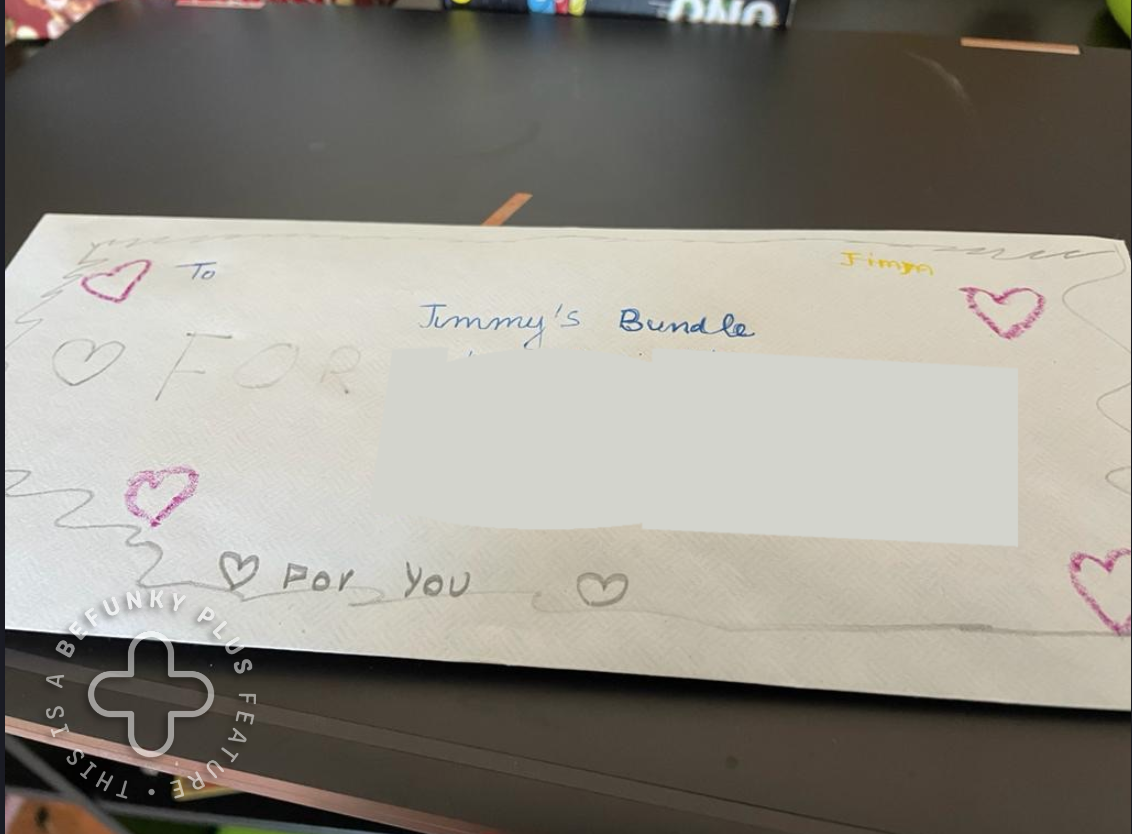 UNO
To
Jimmy
Jimmy's Bundle
FOR
For You
THIS IS A BEFUNKY PLUS FEATURE •